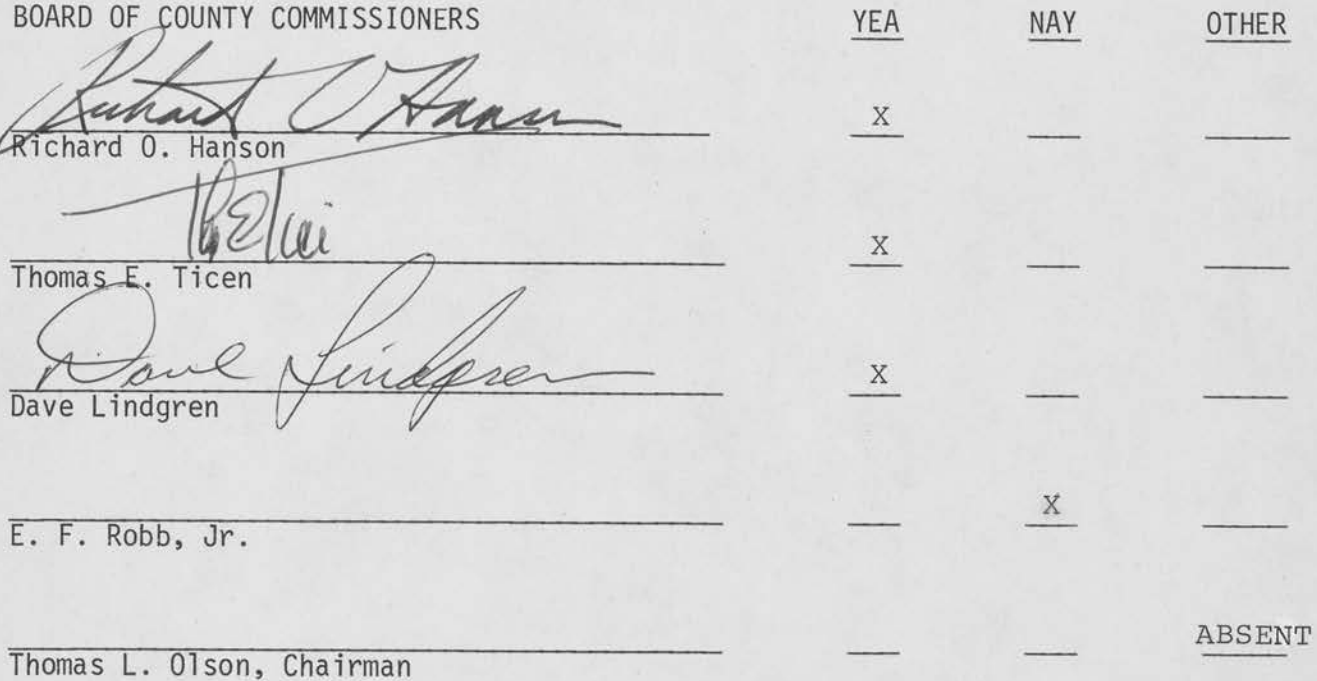 BOARD OF COUNTY COMMISSIONERS YEA NAY OTHER
Richard O Hanson X
Richard O. Hanson
X
Thomas E. Ticen
Dave Lindgren X
Dave Lindgren
X
E. F. Robb, Jr.
ABSENT
Thomas L. Olson, Chairman